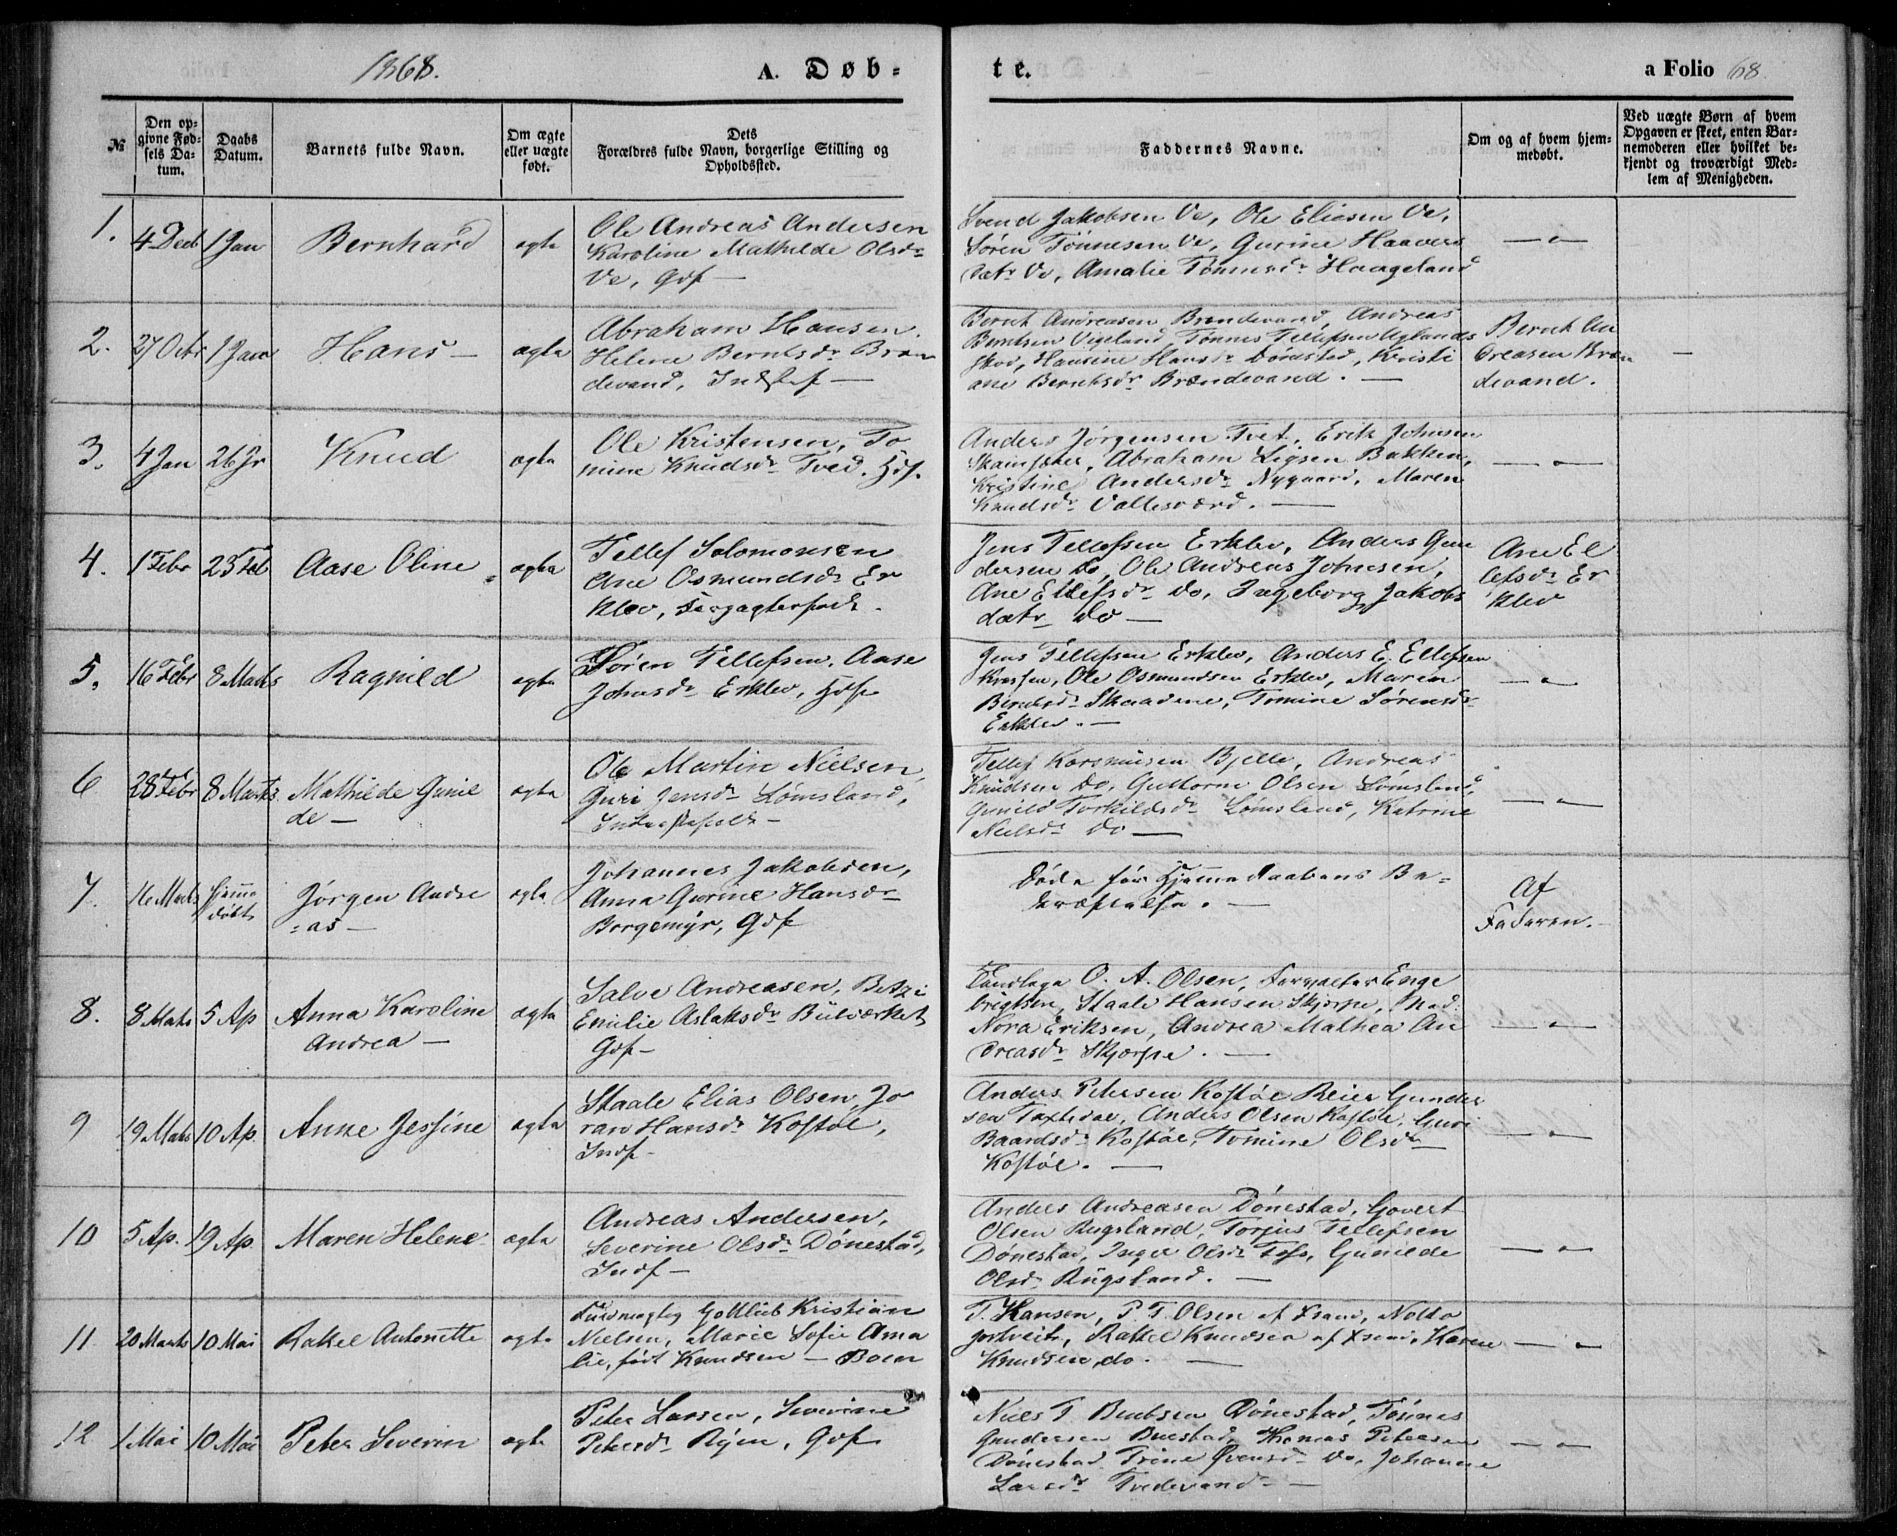 1868.
A. Døb-
te.
a Folio 68.
№
Den op-
givne Fød-
sels Da-
tum.
Daabs
Datum.
Barnets fulde Navn.
Om ægte
eller uægte
født.
Dets
Forældres fulde Navn, borgerlige Stilling og
Opholdssted.
Faddernes Navne.
Om og af hvem hjem-
medøbt.
Ved uægte Børn af hvem
Opgaven er skeet, enten Bar-
nemoderen eller hvilket be-
kjendt og troværdigt Med-
lem af Menigheden.
1.
4 Decb
1 Jan
Bernhard
ægte
Ole Andreas Andersen
Karoline Mathilde Olsdr
Ve, Gdf
Svend Jakobsen Ve, Ole Eliesen Ve,
Sören Tönnesen Ve, Gurine Haavors
datr Ve, Amalie Tönnesdr Haageland
2.
27 Octbr
1 Jan
Hans
ægte
Abraham Hansen
Helene Berntsdr Bræn
devand, Indstf
Bernt Andreasen Brændevand, Andreas
Berntsen Vigeland, Tönnes Tellefsen Uglands
skov, Hansine Hansdr Dönestad, Kristi
ane Berntsdr Brændevand.
Bernt An
dreasen Bræn
devand.
3.
4 Jan
26 Jr
Knud
ægte
Ole Kristensen, To
mine Knudsdr Tved. Hdf.
Anders Jörgensen Tvet, Erik Johnsen
Abraham Bakken,
Kristine Andersdr Nygaard, Maren
Knudsdr Vallesværd.
4.
1 Febr
23 Feb
Aase Oline
ægte
Tellef Solomonsen
Ane Osmundsdr Er
klev, Forpagterfolk.
Jens Tellefsen Erklev, Anders Gun
dersen Do, Ole Andreas Johnsen,
Ane Ellefsdr Do, Ingeborg Jakobs
datr Do
Ane El
lefsdr Er
klev
5.
16 Febr
8 Marts
Ragnild
ægte
Sören Tellefsen, Aase
Johnsdr Erklev, Hdf
Jens Tellefsen Erklev, Anders E. Ellefsen
Ole Osmundsen Erklev, Maren
Berntsdr Skaadene, Tomine Sörensdr
Erklev.
6
28 Febr
8 Marts
Mathilde Gunil
de
ægte
Ole Martin Nielsen,
Guri Jensdr Lömsland,
Tellef Korsmusen Bjelle, Andreas
Knudsen Do, Guttorm Olsen Lömsland,
Gunild Torkildsdr Lömsland, Katrine
Nielsdr Do
7.
16 Marts
Hjemme
döbt
Jörgen Andre
as
ægte
Johannes Jakobsen,
Anna Gurine Hansdr
Borgemyr, Gdf
Döde för Hjemmedaabens Be-
kræftelse.
Af
Faderen.
8.
8 Marts
5 Ap
Anna Karoline
Andrea
ægte
Salve Andreasen, Betzi
Emilie Aslaksdr Bülværket
Gdf
O. A. Olsen, Forpagter Enge
brigtsen, Staale Hansen Skjerpe, Mad.
Nora Eriksen, Andrea Mathea An
dreasdr Skjerpe.
9
19 Marts
10 Ap
Anne Jessine
ægte
Staale Elias Olsen, Jo
ran Hansdr Kostöl,
Indf
Anders Petersen Kostöl, Reier Gunder
sen Anders Olsen Kostöl, Guri
Baardsdr Kostöl, Tomine Olsdr
Kostöl.
10
5 Ap.
19 Ap.
Maren Helene
ægte
Andreas Andersen,
Severine Olsdr Dönestad,
Indf
Anders Andreasen Dönestad, Govert
Olsen Rugsland, Torjus Tellefsen
Dönestad, Inger Olsdr Foss, Gunilde
Olsdr Rugsland.
11
20 Marts
10 Mai
Rakel Antonette
ægte
Fuldmægtig Gottlieb Kristian
Nielsen, Marie Sofie Ama
lie, födt Knudsen — Boen
T. Hansen, P. T. Olsen af Xsand, Notto
Jortveit, Rakel Knudsen af Xsand, Karen
Knudsen do.
12
1 Mai
10 Mai
Peter Severin
ægte
Peter Larsen, Severine
Petersdr Ryen, Gdf
Niels T. Berntsen Dönestad, Tönnes
Gundersen Thomas Petersen
Dönestad, Trine Do, Johanne
Larsdr Tvedevand